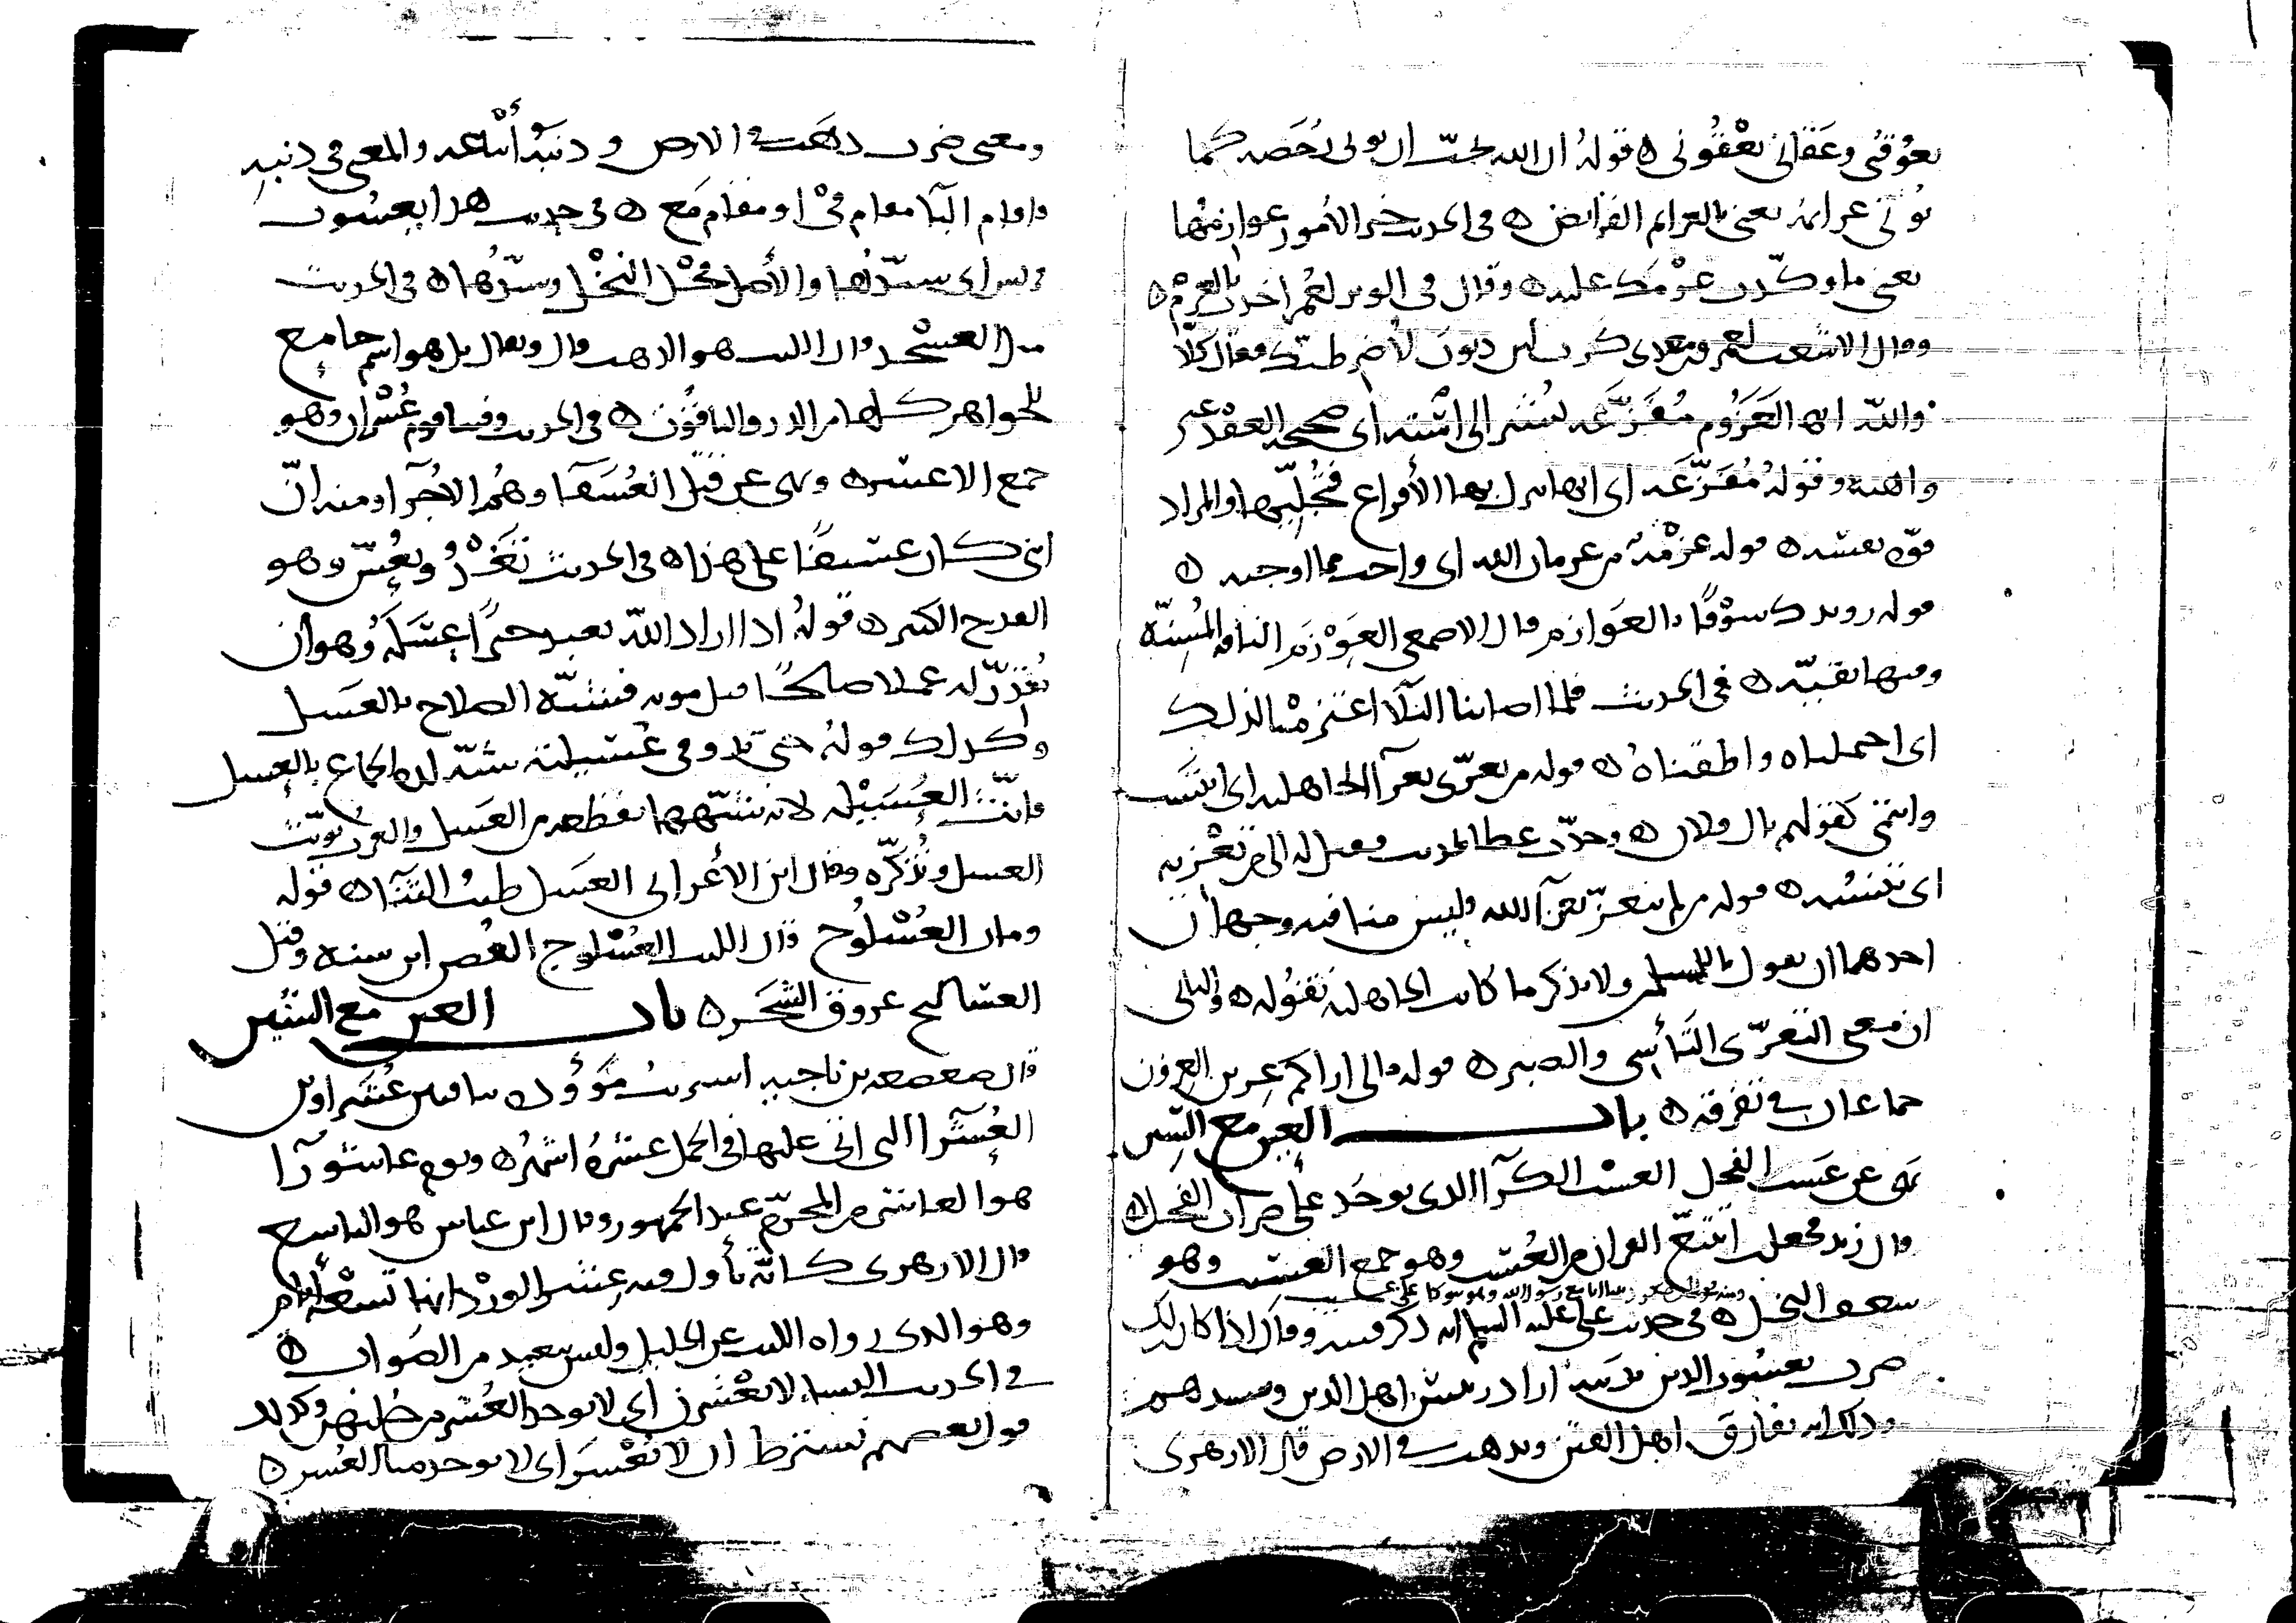 يعوقني وعقاني يعقوني ه قوله ان الله يحب ان يؤتى رخصه كما
يؤتى عزائمه يعني بالعزائم الفرائض ه في الحديث خير الأمور عوازمها
يعني ما وكدت عزمك عليه ه وقال في الوتر لعمر اخذت بالعزم ه
وقال الاشعث لعمرو بن معدي كرب لئن دنوت لأضرطنك فقال كلا
والله انها لعزوم مفزعة يشير الى استه اى صحيحة العقد غير
واهية وقوله مفزعة اى انها تنزل بها الأفزاع فتجليها والمراد
قوله عزمة من عزمات الله اى واجب مما اوجبه ه
قوله رويدك سوقا بالعوازم قال الاصمعي العوزم الناقة المسنة
وفيها بقية ه في الحديث فلما اصابنا البلا اعتزمنا لذلك
اى احتملناه واطقناه ه قوله من تعزى بعزآ الجاهلية اى انتسب
وانتمى كقولهم يال فلان ه وحدث عطا بحديث فقيل له الى من تعزيه
اى تسنده ه قوله من لم يتعز بعزآ الله فليس منا فيه وجهان
احدهما ان يقول يا للمسلمين ولا يذكر ما كانت الجاهلية تقوله ه والثاني
ان معنى التعزى التأسي والصبر ه قوله مالي اراكم عزين العزون
جماعات في تفرقة ه باب العين مع السين
نهى عن عسب الفحل العسب الكرآ الذى يوخذ على ضراب الفحل ه
قال زيد فجعلت اتتبع القران من العسب وهو جمع العسيب وهو
سعف النخل ه في حديث على عليه السلم انه ذكر فتنة وقال اذا كان ذلك
ضرب يعسوب الدين بذنبه اراد رئيس اهل الدين وسيدهم
وذلك انه يفارق اهل الفتن ويذهب في الارض قال الازهرى
ومعنى ضرب ذهب في الارض و ذنبه أتباعه والمعنى في ذنبه
واقام البآ مقام في او مقام مع ه في حديث هذا يعسوب
قريش اى سيدها والأصل فحل النخل وسيدها ه في الحديث
العسجد قال الليث هو الذهب قال ويقال بل هو اسم جامع
للجواهر كلها من الدر والياقوت ه في الحديث وفينا قوم عسران وهو
جمع الاعسر ه ونهى عن قتل العسفآ وهم الأجرآ ومنه ان
ابني كان عسيفا على هذا ه في الحديث تغدو بعس وهو
القدح الكبير ه قوله اذا اراد الله بعبد خيرا عسله وهو ان
يقدر له عملا صالحا قبل موته فشبه الصلاح بالعسل
وكذلك قوله حتى تذوقى عسيلته شبه لذة الجماع بالعسل
وانث العسيلة لانه شبهها بقطعة من العسل والعرب تؤنث
العسل وتذكره وقال ابن الأعرابي العسل طيب الثنآ ه قوله
ومات العسلوج قال الليث العسلوج الغصن ابن سنة وقيل
العساليج عروق الشجر ه باب العين مع الشين
قال صعصعة بن ناجية اشتريت موؤدة بناقتين عشراوين
العشرآ التى اتى عليها في الحمل عشرة اشهر ه ويوم عاشورآ
هو العاشر من المحرم عند الجمهور وقال ابن عباس هو التاسع
قال الازهرى كأنه تأول فيه عشر الورد انها تسعة أيام
وهو الذى رواه الليث عن الخليل وليس ببعيد من الصواب ه
في الحديث النسا لا يعشرن أى لا يوخذ العشر من حليهن وكذلك
قوله بعضهم يشترط ان لا تعشر اى لا يوخذ منا العشر ه